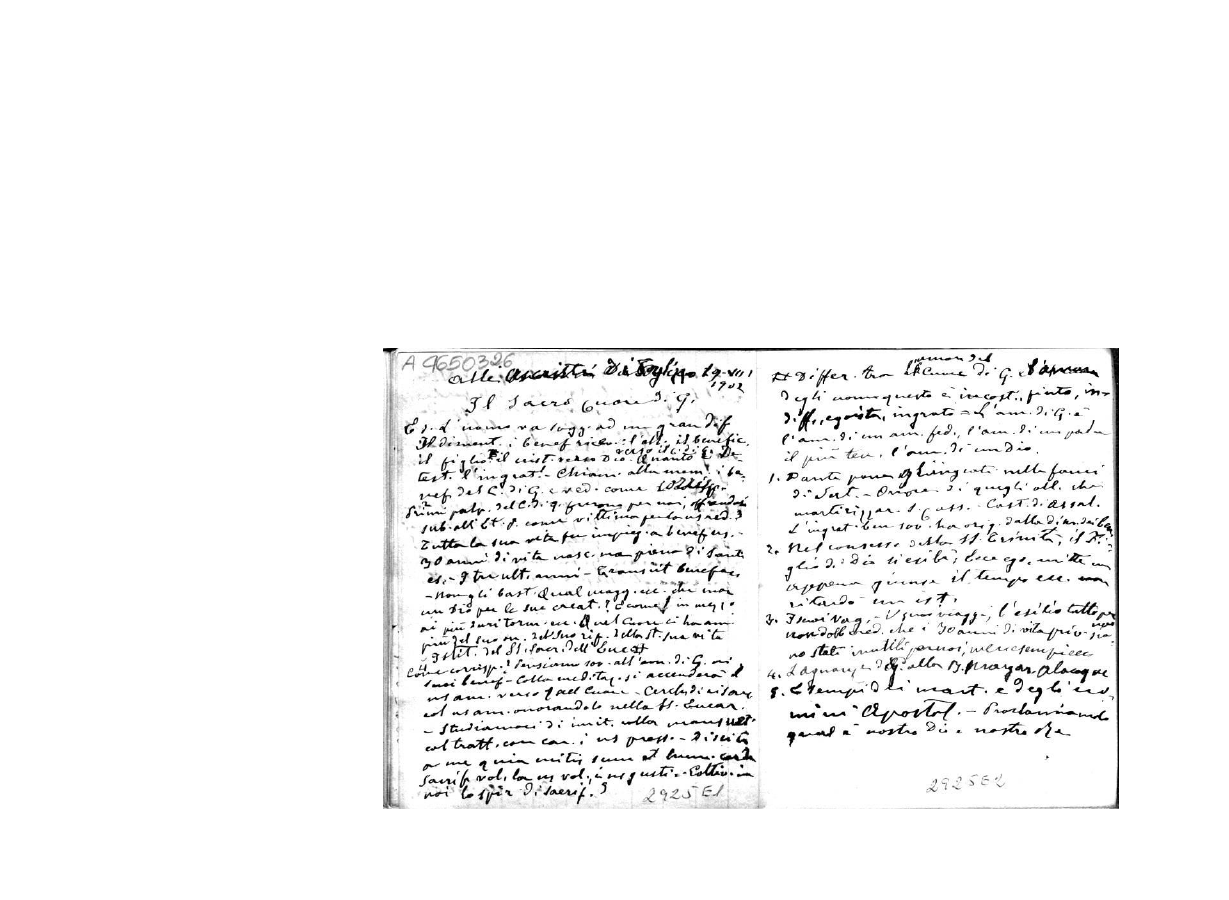 A 4650326
Alle Ascritti Di Foglizzo 19-VII
1902
Il Sacro Cuore di G.
Es. L'uomo va sogg. ad un gran dif.
Il diment. i benef. ricev. l'ob. il benefic.
il figlio il crist. verso Dio. Quanto è De
verso il C. di G.
test. l'ingrat! Chiam. alla mem. i be-
nef. del C. di G. e ved. come
Primi palp. del C. di G. furono per noi, offrendosi
sub. all'Et. P. come vittima per la ns red.
Tutta la sua vita fu impieg. a benef. us.-
30 anni di vita nasc. ma piena di Sante
es.- I tre ult. anni - transiit benefac.
- Non gli bast. Qual magg. ecc. che mor
un Dio per le sue creat.! E come! in mezzo
ai più duri torm. ecc. Quel Cuore ci ha am.
più del suo on. del suo rip. della st. sua vita
- Istit. del SS. Sacr. dell' Eucar
Come corrisp.? Pensiamo sov. all'am. di G. ai
suoi benef.- Colla meditaz. si accenderà il
ns am. verso quel Cuore - Cerch. di risarc.
col ns am. onorandolo nella SS. Eucar.
- Studiamoci di imit. nella mansuet.
col tratt. con car. i ns pross. - Discite
a me quia mitis sum et hum. corde
Sacrif. vol. la ns vol., i ns gusti.- Coltiv. in
noi lo spir. di sacrif.
2925E1
amore del
Differ. tra il Cuore di G. e l'amore
degli uom. questo è incost., finto, in-
diff., egoista, ingrato - L'am. di G. è
l'am. di un am. fed., l'am. di un padre
il più ten., l'am. di un Dio.
1. Dante pone gli ingrati nelle fauci
di - Orrore di quegli all. che
martirizzar. S. Cass. - Cast. di Assal.
L'ingrat. ben sov. ha orig. dalla
2. Nel consesso della SS. Trinità, il Fi-
glio di Dio si esibì, Ecce ego, mitte me
appena giunse il tempo ecc. non
ritardò un ist.
3. I suoi viag., l'esilio tutto per noi
non dobb. cred. che i 30 anni di vita priv. sia-
no stati inutili per noi,
4. Lagnanze di G. alla B. Margar. Alacoque
5. L'esempio dei mart. e degli uo-
mini Apostol. - Proclamando
qual è nostro Dio e nostro Re
2925E2